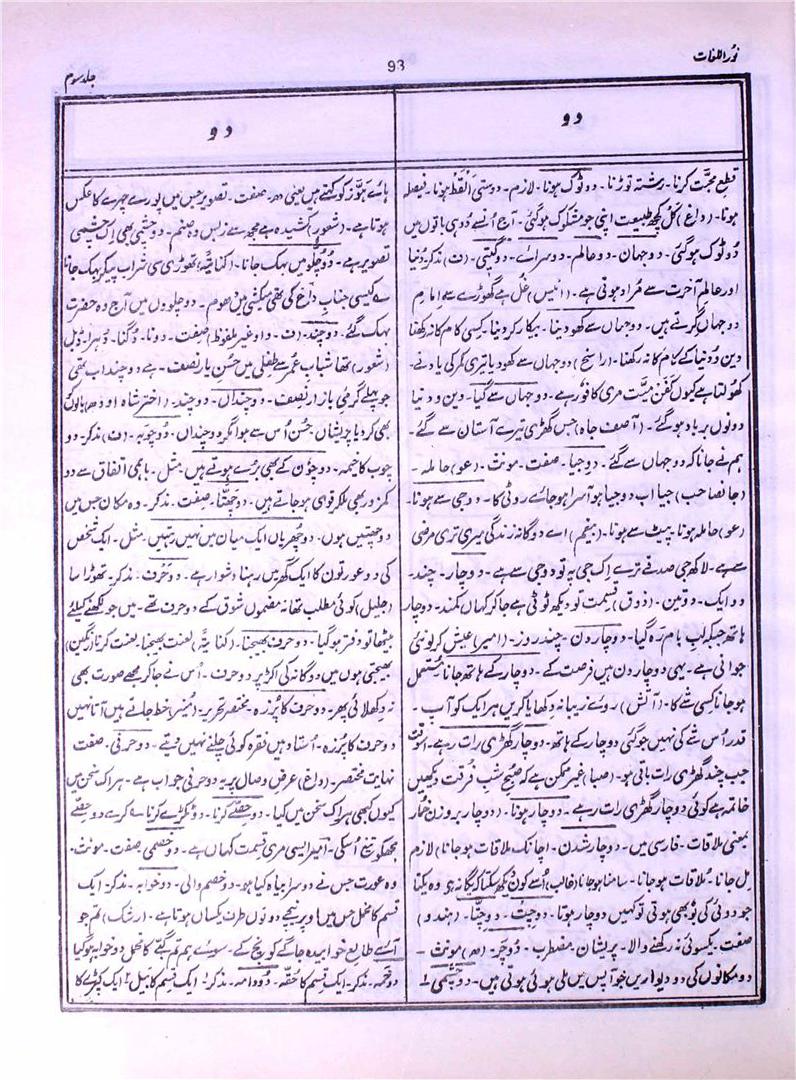 نور اللغات
93
جلد سوم
دو
دو
قطع محبّت کرنا۔ رشتہ توڑنا۔ دو ٹوک ہونا۔ لازم۔ دوستی اِنقطاع ہونا۔ فیصلہ
ہونا۔ (داغ) کل کچھ طبیعت اپنی جو مشکوک ہوگئی۔ آج اُنسے دُو ہی باتوں میں
دُو ٹوک ہوگئی۔ دوجہان۔ دو عالم۔ دوسرائے۔ دوگیتی۔ (ف) مذکر۔ دُنیا
اور عالمِ آخرت سے مُراد ہوتی ہے۔ (انیس) غُل ہے گھوڑے سے اِمامِ
دوجہاں گرتے ہیں۔ دوجہاں سے کھو دینا۔ بیکار کردینا۔ کسی کام کا نہ رکھنا
دین و دُنیا کے کام کا نہ رکھنا۔ (راسخ) دوجہاں سے کھو دیا تیری کمر کی یاد نے۔
کھولتا ہے کیوں کفن میّت مری کافور ہے۔ دو جہاں سے گیا۔ دین و دنیا
دونوں برباد ہوگئے۔ (آصف جاہ) جس گھڑی تیرے آستان سے گئے۔
ہم نے جانا کہ دوجہاں سے گئے۔ دوجیا۔ صفت۔ مونث۔ (عو) حاملہ۔
(جانصاحب) جیا اب دوجیا ہو آسرا ہوجائے روٹی کا۔ دوجی سے ہونا۔
(عو) حاملہ ہونا۔ پیٹ سے ہونا۔ (بیغم) اے دوگانہ زندگی میری تری مرضی
سے ہے۔ لاکھ جی صدقے ترے اِک جی یہ تو دوجی سے ہے۔ دوچار۔ چند۔
دو ایک۔ دو تین۔ (ذوق) قسمت تو دیکھ ٹوٹی ہے جاکر کہاں کمند۔ دوچار
ہاتھ جبکہ لب بام رہ گیا۔ دوچار دن۔ چند روز۔ (امیر) عیش کرلو نئی
جوانی ہے۔ یہی دوچار دن ہیں فرصت کے۔ دوچار کے ہاتھ جانا۔ مستعمل
ہوجانا کسی شے کا۔ (آتش) روئے زیبا نہ دِکھایا کریں ہر ایک کو آپ۔
قدر اُس شے کی نہیں جو گئی دوچار کے ہاتھ۔ دوچار گھڑی رات رہے۔ اُسوقت
جب چند گھڑی رات باقی ہو۔ (صبا) غیر ممکن ہے کہ صبحِ شبِ فرقت دیکھیں
خاتمہ ہے کوئی دوچار گھڑی رات رہے۔ دوچار ہونا۔ (دوچار بروزن خمار
بمعنی ملاقات۔ فارسی میں۔ دوچار شدن۔ اچانک ملاقات ہوجانا) لازم
مِل جانا۔ مُلاقات ہوجانا۔ سامنا ہوجانا (غالب) اُسے کون دیکھ سکتا کہ یگانہ ہے وہ یکتا
جو دوئی کی بو بھی ہوتی تو کہیں دوچار ہوتا۔ دوچِت۔ دوچِتّا۔ (ہندو)
صفت۔ یکسوئی نہ رکھنے والا۔ پریشان۔ مضطرب۔ دُوچَتّہ۔ (ھ) مونث۔
دو مکانوں کی دو دیواریں جو آپس میں ملی ہوئی ہوتی ہیں۔ دوچشمی ا
ہائے ہوّز کو کہتے ہیں یعنی ھ۔ صفت۔ تصویر جس میں پورے چہرے کا عکس
ہوتا ہے۔ (شعور) کشیدہ ہے مجھ سے زبس وہ صنم۔ دوچشمی بھی اِک چشمی
تصویر ہے۔ دُو چُلّو میں بہک جانا۔ (کنایۃً) تھوڑی سی شراب پیکر بہک جانا
ے کیسی جنابِ داغ کی تھی میکشی میں دھوم۔ دوچلووں میں آج وہ حضرت
بہک گئے۔ دوچند۔ (ف۔ واو غیر ملفوظ) صفت۔ دونا۔ دُگنا۔ دُہرا۔ ڈبل
(شعور) تھا شباب عُمر سے طفلی میں حُسنِ یار نصف۔ ہے دوچند اب تھی
جو پہلے گرمی بازار نصف۔ دوچنداں۔ دوچند۔ (اختر شاہ اودھ) بالوں کو
بھی کردیا پریشاں۔ حُسن اُس سے ہوا مگر دوچنداں۔ دُوچوبہ۔ (ف) مذکر۔ دو
چوب کا خیمہ۔ دو چون کے بھی بُرے ہوتے ہیں۔ مثل۔ باہمی اتفاق سے دو
کمزور بھی ملکر قوی ہوجاتے ہیں۔ دوچَھتّا۔ صفت۔ مذکر۔ وہ مکان جس میں
دوچھتیں ہوں۔ دوچُھریاں ایک میان میں نہیں رہتیں۔ مثل۔ ایک شخص
کی دوعورتوں کا ایک گھر میں رہنا دشوار ہے۔ دو حرف۔ مذکر۔ تھوڑا سا
(جلیل) کوئی مطلب تھا نہ مضموں شوق کے دو حرف تھے۔ میں جو لکھنے کیلئے
بیٹھا تو دفتر ہوگیا۔ دو حرف بھیجنا۔ (کنایۃً) لعنت بھیجنا۔ لعنت کرنا (رنگین)
بھیجتی ہوں میں دوگانہ کی اکڑ پر دو حرف۔ اُس نے جاکر مجھے صورت بھی
نہ دکھلائی پھر۔ دو حرف کا پُرزہ۔ مختصر تحریر۔ (مُنیر) خط جاتے ہیں آتا نہیں
دو حرف کا پُرزہ۔ اُستاد ہیں فقرہ کوئی چلنے نہیں دیتے۔ دوحرفی۔ صفت
نہایت مختصر۔ (داغ) عرضِ وصال پر یہ دوحرفی جواب ہے۔ ہراک سخن میں
کیوں کبھی ہراک سخن میں کیا۔ دو حِصّے کرنا۔ دو ٹکڑے کرنا ے کرے دو حِصّے
مجھکو تیغ اُسکی۔ امیر ایسی مری قسمت کہاں ہے۔ دوخصمی۔ صفت۔ مونث۔
وہ عورت جس نے دوسرا بیاہ کیا ہو۔ دوخصم والی۔ دوخوابہ۔ مذکر۔ ایک
قسم کا مخمل جس میں اوپر نیچے دونوں طرف یکساں ہوتا ہے۔ (رشک) تم جو
آئے طالعِ خوابیدہ جاگے کونچ کے۔ سوئے ہم تم گنجے کا مخمل دوخوابہ ہوگیا
دوخمہ۔ مذکر۔ ایک قسم کا حقّہ۔ دودامہ۔ مذکر۔ ایک قسم کا بیل! ایک کپڑے کا